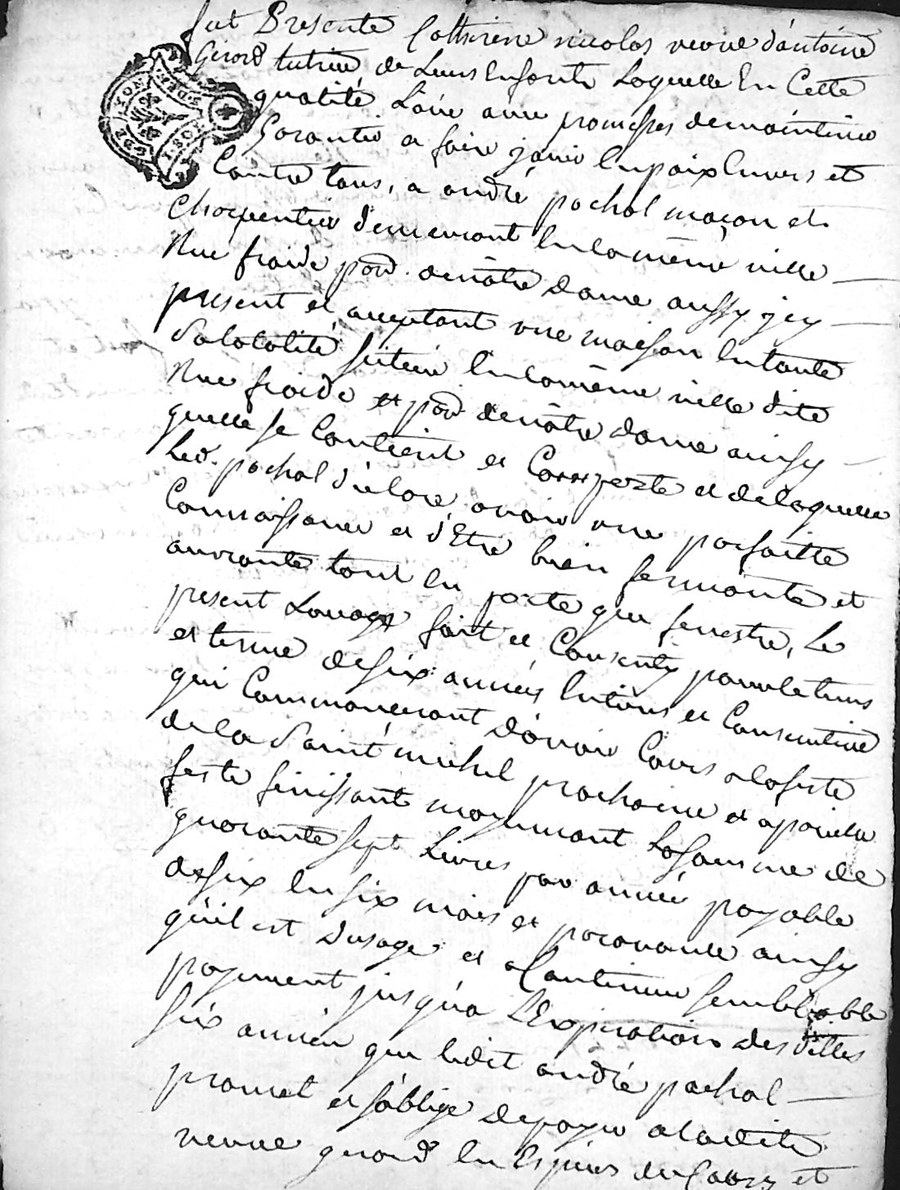 fut Presente Catherine nicolas veuve d'antoine
Girard tutrice de Leurs Enfants Laquelle En Cette
qualité Loüe avec promesses de maintenir
Garantir a faire jouir En paix Envers et
Contre tous, a andré pachal maçon et
Charpentier demeurant En la même ville
Rue froide parr. de nôtre dame aussy jcy
present et acceptant une maison En toute
sa totalité scituée En la même ville dite
Rue froide et parr. de nôtre dame ainsy
quelle se Contient et Comporte et de laquelle
Led. pachal déclare avoir une parfaitte
Connoissance et d'Etre bien fermante et
ouvrante tant En porte que fenestre, Le
present Louage fait et Consenty pour le tems
et terme de six années Entieres et Consecutive
qui Commenceront d'avoir Cours a la feste
de la Saint michel prochaine et a pareille
feste finissant moyennant La somme de
quarante sept Livres par année payable
de six En six mois et par avance ainsy
qu'il est d'usage et a Continuer semblable
payement jusqu'a L'Expiration des dittes
six années que ledit andré pachal
promet et s'oblige de payer a la ditte
veuve girard En Especes de Cours et